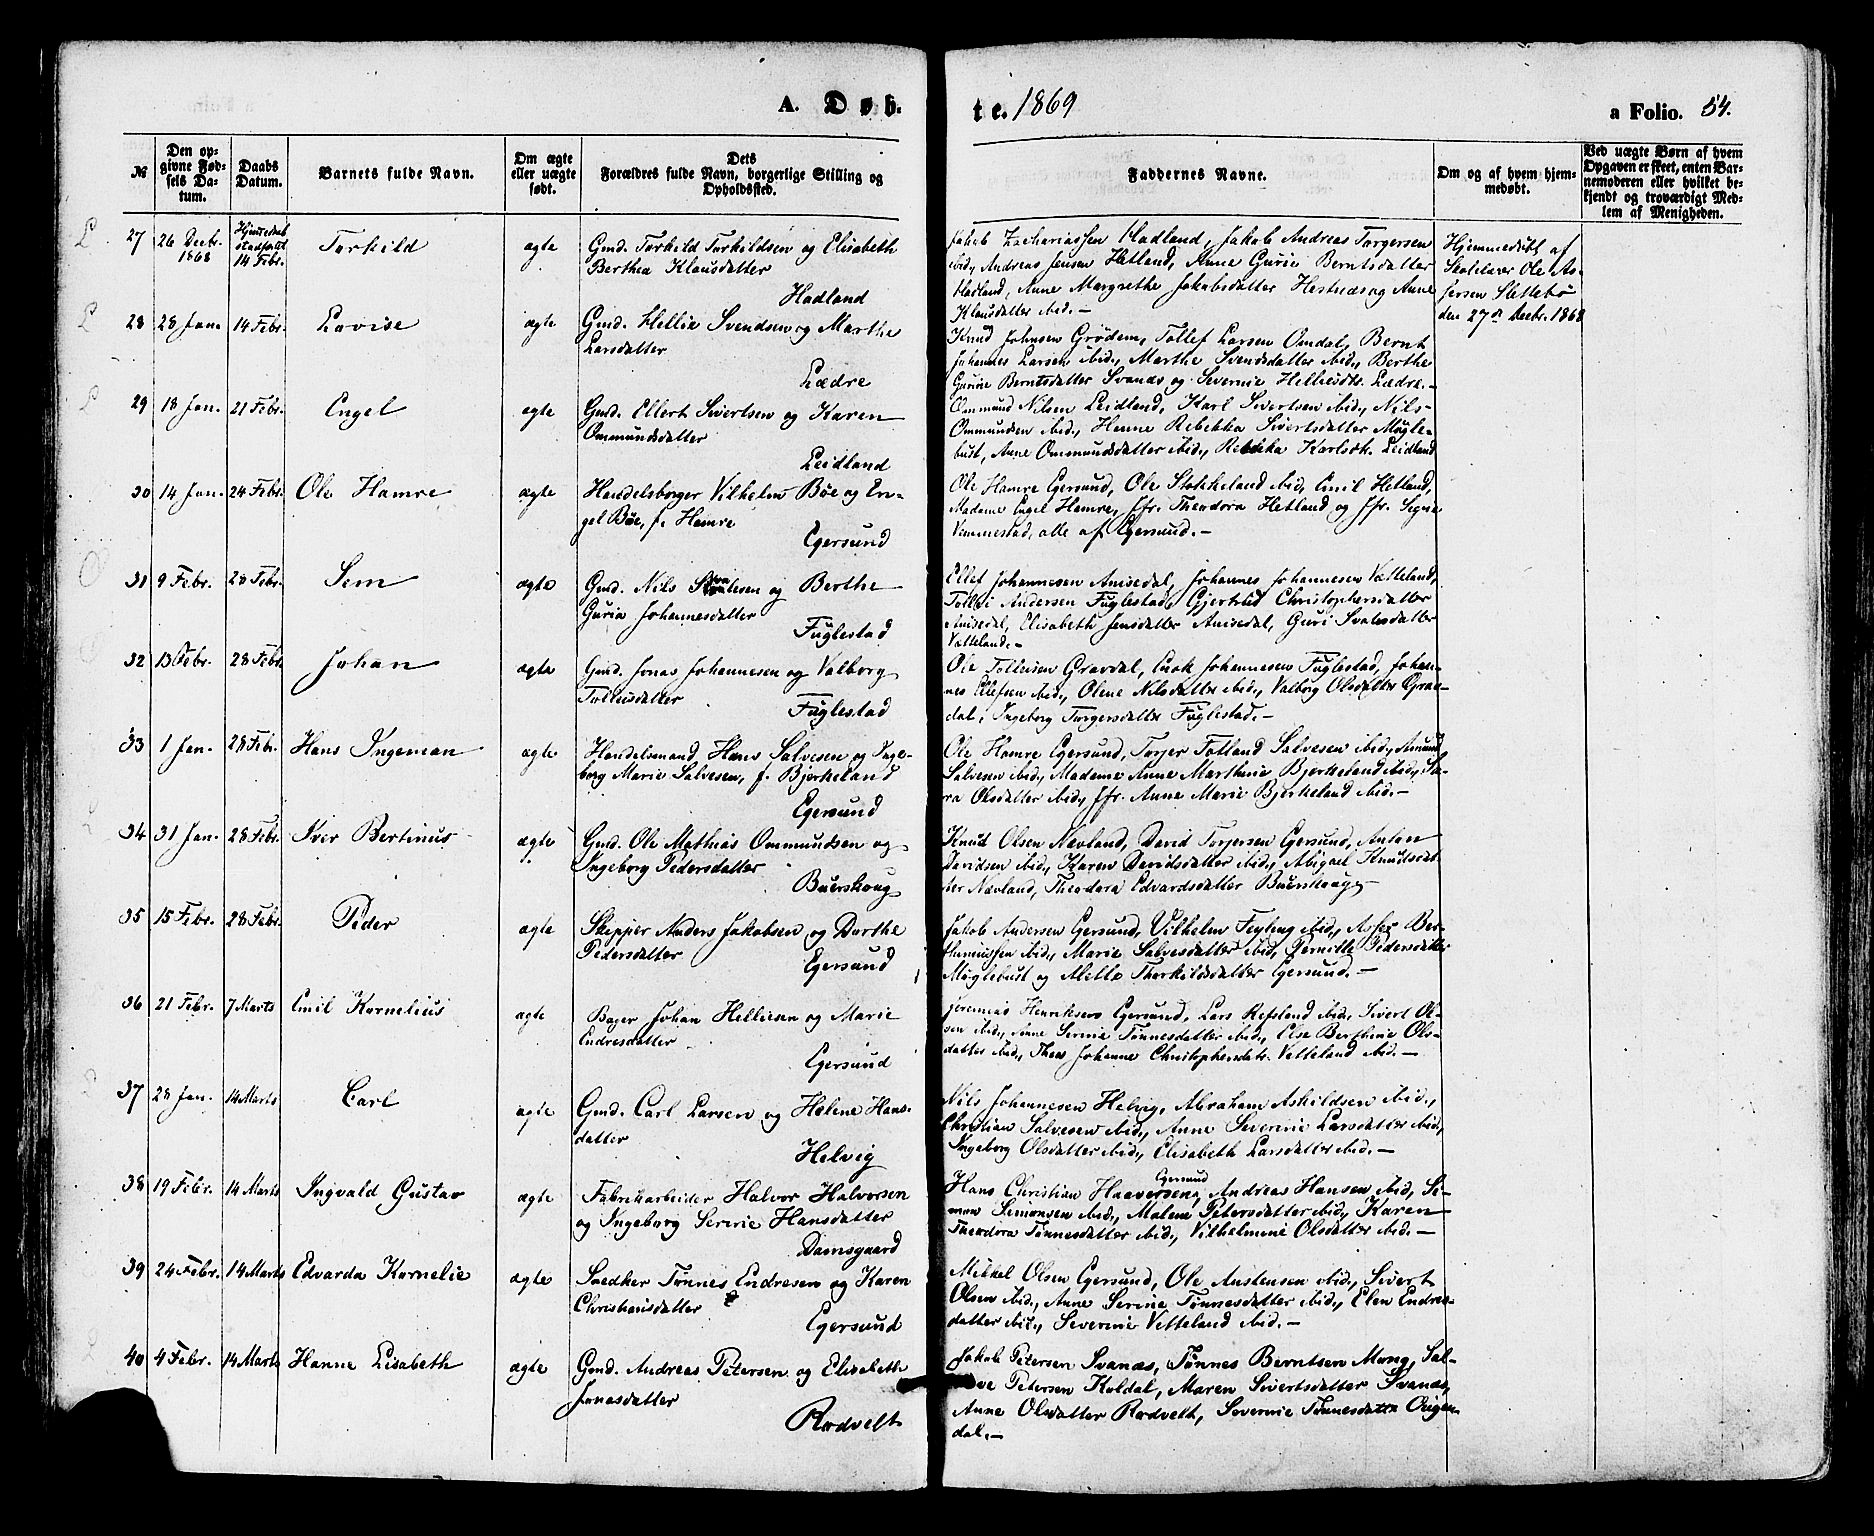 A. Døb-
te. 1869
a Folio. 54.
№
Den op-
givne Fød-
sels Da-
tum.
Daabs
Datum.
Barnets fulde Navn.
Om ægte
eller uægte
født.
Dets
Forældres fulde Navn, borgerlige Stilling og
Opholdssted.
Faddernes Navne.
Om og af hvem hjem-
medøbt.
Ved uægte Børn af hvem
Opgaven er skeet, enten Bar-
nemoderen eller hvilket be-
kjendt og troværdigt Med-
lem af Menigheden.
27 26 Decbr. 1868 14 Febr. Torkild ægte Gmd. Torkild Torkildsen og Elisabeth
Berthea Klausdatter
Hadland
Jakob Zachariassen Hadland, Jakob Andreas Torgersen
ibid., Andreas Jensen Hetland, Anne Gurie Berntsdatter
Hadland, Anne Margrethe Jakobsdatter Hestnæs og Anne
Klausdatter ibid.-
Hjemmedøbt af
Skolelærer Ole As-
persen Slettebø
den 27de Decbr. 1868
28 28 Jan. 14 Febr. Lovise ægte Gmd. Hellie Svendsen og Marthe
Larsdatter
Lædre
Knud Johnsen Grødem, Tollef Larsen Omdal, Bernt
Johannes Larsen ibid., Marthe Svendsdatter ibid., Berthe
Gurine Berntsdatter Svanæs og Severine Helliesdtr. Lædre.-
29 18 Jan. 21 Febr. Engel ægte Gmd. Ellert Sivertsen og Karen
Ommundsdatter
Leidland
Ommund Nilsen Leidland, Karl Sivertsen ibid., Nils
Ommundsen ibid., Hanne Rebekka Sivertsdatter Møgle-
bust, Anne Ommundsdatter ibid., Rebekka Karlsdt. Leidland
30 14 Jan. 24 Febr. Ole Hamre ægte Handelsborger Vilhelm Bøe og En-
gel Bøe, f. Hamre
Egersund
Ole Hamre Egersund, Ole Stokkeland ibid., Emil Hetland,
Madame Engel Hamre, Jfr. Theodora Hetland og Jfr. Signe
Vemmestad, alle af Egersund.-
31 9 Febr. 28 Febr. Sem ægte Gmd. Nils og Berthe
Guria Johannesdatter
Fuglestad
Ellef Johannesen Anisedal, Johannes Johannesen Vætteland,
Tollef Andersen Fuglestad, Gjertrud Christophersdatter
Anisedal, Elisabeth Jensdatter Anisedal, Guri Svalesdatter
Vætteland.-
32 13 Febr. 28 Febr. Johan ægte Gmd. Jonas Johannesen og Valborg
Tolleisdatter
Fuglestad
Ole Tolleisen Gravdal, Enok Johannesen Fuglestad, Johan-
nes Ellefsen ibid., Olene Nilsdatter ibid., Valborg Olsdatter Grav-
dal, Ingeborg Torgersdatter Fuglestad.-
33 1 Jan. 28 Febr. Hans Ingeman ægte Handelsmand Hans Salvesen og Inge-
borg Marie Salvesen, f. Bjerkeland
Egersund
Ole Hamre Egersund, Torjer Fotland Salvesen ibid., Amund
Salvesen ibid., Madame Anne Marthine Bjerkeland ibid., Sa-
ra Olsdatter ibid., Jfr. Anne Marie Bjerkeland ibid.-
34 31 Jan. 28 Febr. Iver Bertinus ægte Gmd. Ole Mathias Ommundsen og
Ingeborg Pedersdatter
Buerskoug
Knud Olsen Nævland, David Torjersen Egersund, Anton
Davidsen ibid., Karen Davidsdatter ibid., Abigael Knudsdat-
ter Nævland, Theodora Edvardsdatter Buerskoug.-
35 15 Febr. 28 Febr. Peder ægte Skipper Anders Jakobsen og Dorthe
Pedersdatter
Egersund
Jakob Andersen Egersund, Vilhelm Feyling ibid., Asser Ber-
thiniussen ibid., Marie Salvesdatter ibid., Pernille Pedersdatter
Møglebust og Mette Thorkildsdatter Egersund.-
36 21 Febr. 7 Marts Emil Kornelius ægte Bager Johan Helliesen og Marie
Endresdatter
Egersund
Jeremias Henriksen Egersund, Lars Refsland ibid., Sivert Ol-
sen ibid., Anne Serine Tønnesdatter ibid., Else Berthine Ols-
datter ibid., Thea Johanne Christophersdatr. Vetteland ibid.-
37 28 Jan. 14 Marts Carl ægte Gmd. Carl Larsen og Helene Hans-
datter
Helvig
Nils Johannesen Helvig, Abraham Askildsen ibid.,
Christian Salvesen ibid., Anne Severine Larsdatter ibid.,
Ingeborg Olsdatter ibid., Elisabeth Larsdatter ibid.-
38 19 Febr. 14 Marts Ingvald Gustav ægte Fabrikarbeider Halvor Halvorsen
og Ingeborg Serine Hansdatter
Damsgaard
Hans Christian Haaversen Egersund, Andreas Hansen ibid., Si-
mon Simonsen ibid., Malene Petersdatter ibid., Karen
Theodora Tønnesdatter ibid., Vilhelmine Olsdatter ibid.-
39 24 Febr. 14 Marts Edvarda Kornelie ægte Snedker Tønnes Endresen og Karen
Christiansdatter
Egersund
Mikkel Olsen Egersund, Ole Austensen ibid., Sivert
Olsen ibid., Anne Serine Tønnesdatter ibid., Elen Endres-
datter ibid., Severine Vetteland ibid.-
40 4 Febr. 14 Marts Hanne Lisabeth ægte Gmd. Andreas Petersen og Elisabeth
Jonasdatter
Rodvelt
Jakob Petersen Svanæs, Tønnes Berntsen Mong, Sal-
ve Petersen Koldal, Maren Sivertsdatter Svanæs,
Anne Olsdatter Rodvelt, Severine Tønnesdattr Eigen-
dal.-